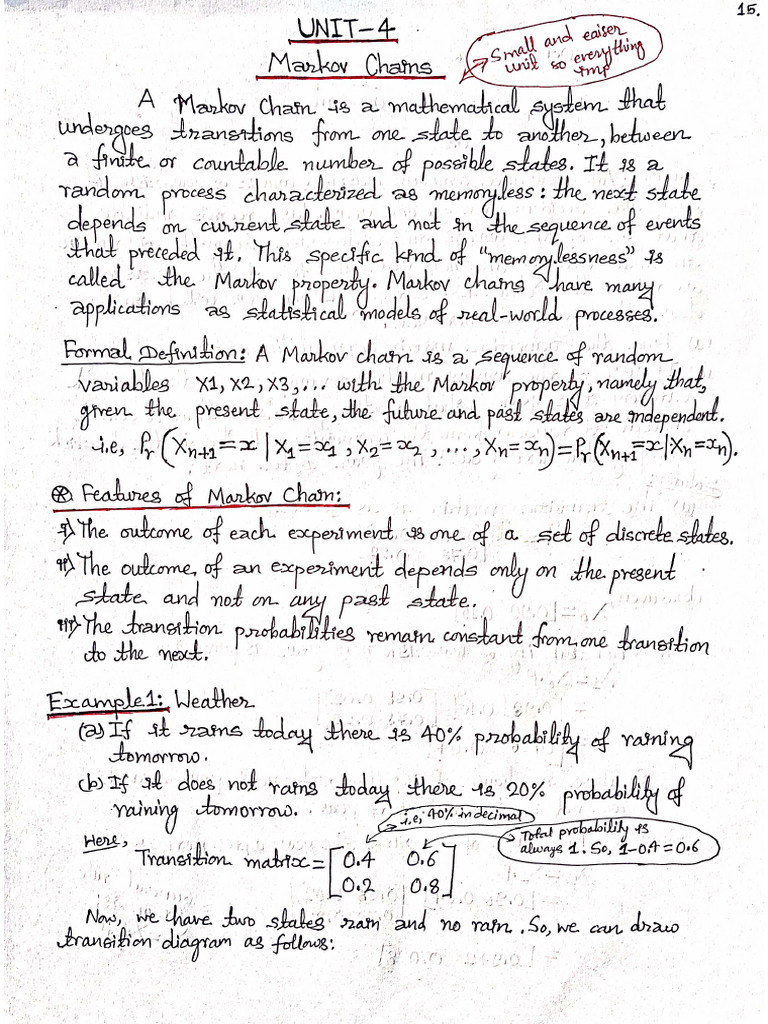 15.
UNIT-4
Markov Chains
Small and eaiser
unit so everything
imp
A Markov Chain is a mathematical system that
undergoes transitions from one state to another, between
a finite or countable number of possible states. It is a
random process characterized as memoryless: the next state
depends on current state and not in the sequence of events
that preceded it. This specific kind of "memorylessness" is
called the Markov property. Markov chains have many
applications as statistical models of real-world processes.
Formal Definition: A Markov chain is a sequence of random
variables X1, X2, X3, ... with the Markov property, namely that,
given the present state, the future and past states are independent.
i.e, Pr (Xn+1 = x | X1 = x1, X2 = x2, ..., Xn = xn) = Pr (Xn+1 = x | Xn = xn).
⊛ Features of Markov Chain:
i) The outcome of each experiment is one of a set of discrete states.
ii) The outcome of an experiment depends only on the present
state and not on any past state.
iii) The transition probabilities remain constant from one transition
to the next.
Example1: Weather
(a) If it rains today there is 40% probability of raining
tomorrow.
(b) If it does not rains today there is 20% probability of
raining tomorrow.
i.e; 40% in decimal
Total probability is
always 1. So, 1-0.4=0.6
Here,
Transition matrix = [0.4 0.6
0.2 0.8]
Now, we have two states rain and no rain. So, we can draw
transition diagram as follows: